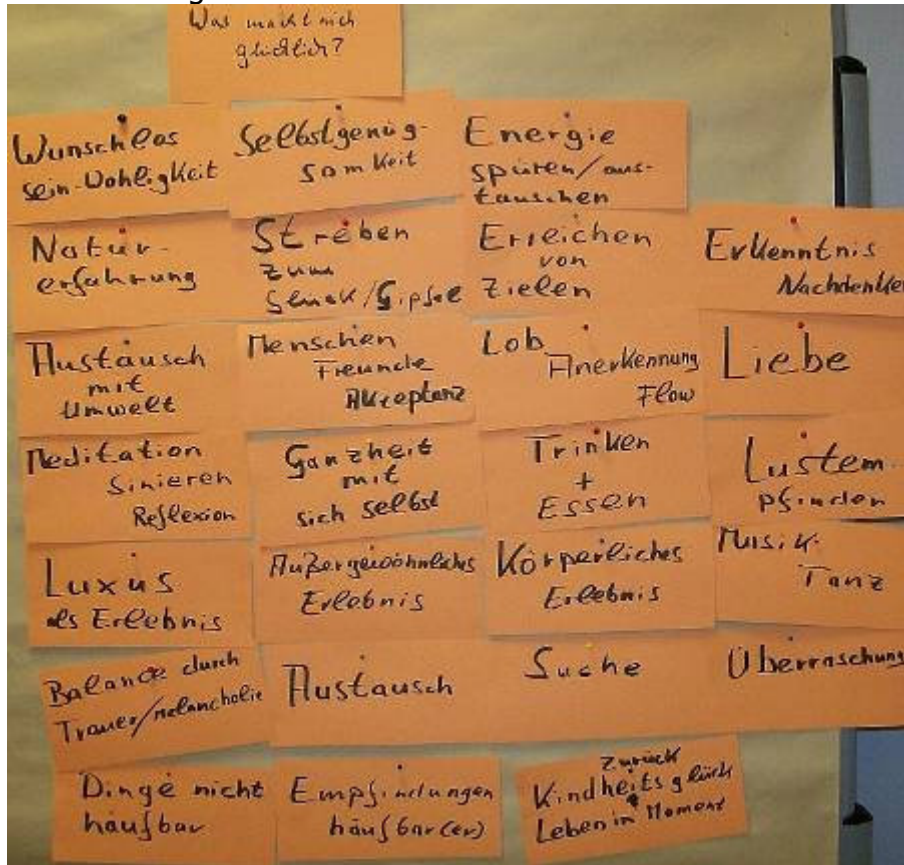 Was macht mich
glücklich?
Wunschlos
sein-Wohligkeit
Selbstgenüg-
samkeit
Energie
spüren/aus-
tauschen
Natur-
erfahrung
Streben
zum
Glück/Gipfel
Erreichen
von
Zielen
Erkenntnis
Nachdenken
Austausch
mit
Umwelt
Menschen
Freunde
Akzeptanz
Lob
Anerkennung
Flow
Liebe
Meditation
Sinieren
Reflexion
Ganzheit
mit
sich selbst
Trinken
+
Essen
Lustem-
pfinden
Luxus
als Erlebnis
Außergewöhnliches
Erlebnis
Körperliches
Erlebnis
Musik
Tanz
Balance durch
Trauer/Melancholie
Austausch
Suche
Überraschung
Dinge nicht
häufbar
Empfindungen
häufbar(er)
Zurück
Kindheitsglück
Leben im Moment